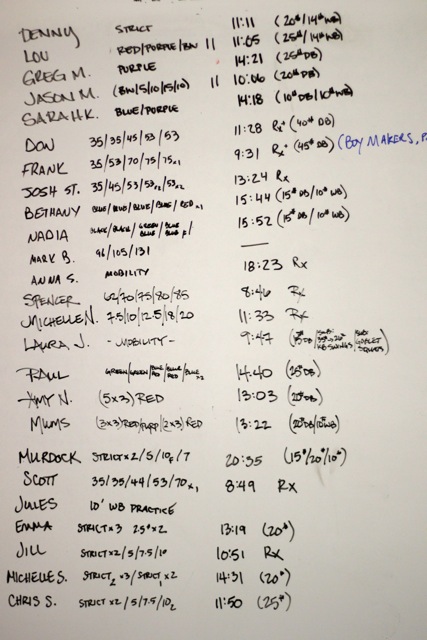 DENNY STRICT 11:11 (20#/14#WB)
LOU RED/PURPLE/BN 11 11:05 (25#/14#WB)
GREG M. PURPLE 14:21 (25#DB)
JASON M. (BW/5/10/15/10) 11 10:06 (20#DB)
SARAH K. BLUE/PURPLE 14:18 (10#DB/10#WB)
DON 35/35/45/53/53 11:28 Rx+ (40# DB)
FRANK 35/53/70/75/75x1 9:31 Rx+ (45# DB) (BOY MAKERS,
JOSH ST. 35/45/53/53x2/53x2 13:24 Rx
BETHANY BLUE/BLUE/BLUE/BLUE/RED x1 15:44 (15#DB/10#WB)
NADIA BLACK/BLACK/GREEN BLUE/BLUE 15:52 (15#DB/10#WB)
MARK B. 96/105/131 —
ANNA S. MOBILITY 18:23 Rx
SPENCER 62/70/75/80/85 8:46 Rx
MICHELLE N. 7.5/10/12.5/18/20 11:33 Rx
LAURA J. -MOBILITY- 9:47 (15#DB KB SWINGS GOBLET SQUATS)
RAUL GREEN/GREEN/BLUE RED/BLUE RED/BLUE x2 14:40 (25#DB)
AMY N. (5x3) RED 13:03 (20#DB)
MUMS (3x3)RED/PURP/(2x3) RED 13:22 (20#DB/10#WB)
MURDOCK STRICT x2/5/10F/7 20:35 (15#/20#/10#)
SCOTT 35/35/44/53/70x1 8:49 Rx
JULES 10' WB PRACTICE
EMMA STRICT x3 25# x2 13:19 (20#)
JILL STRICT x2/5/7.5/10 10:51 Rx
MICHELLE S. STRICT2 x3/STRICT1 x2 14:31 (20#)
CHRIS S. STRICT x2/5/7.5/10 2 11:50 (25#)